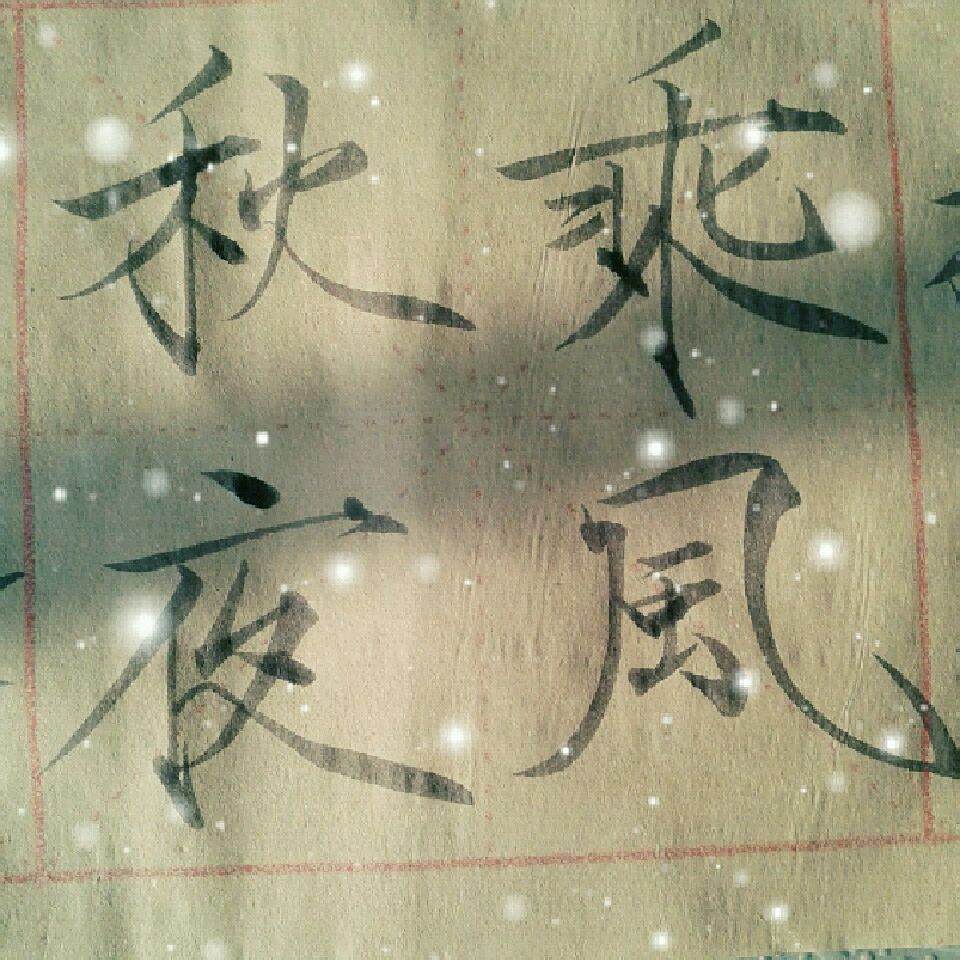 乘風
秋夜